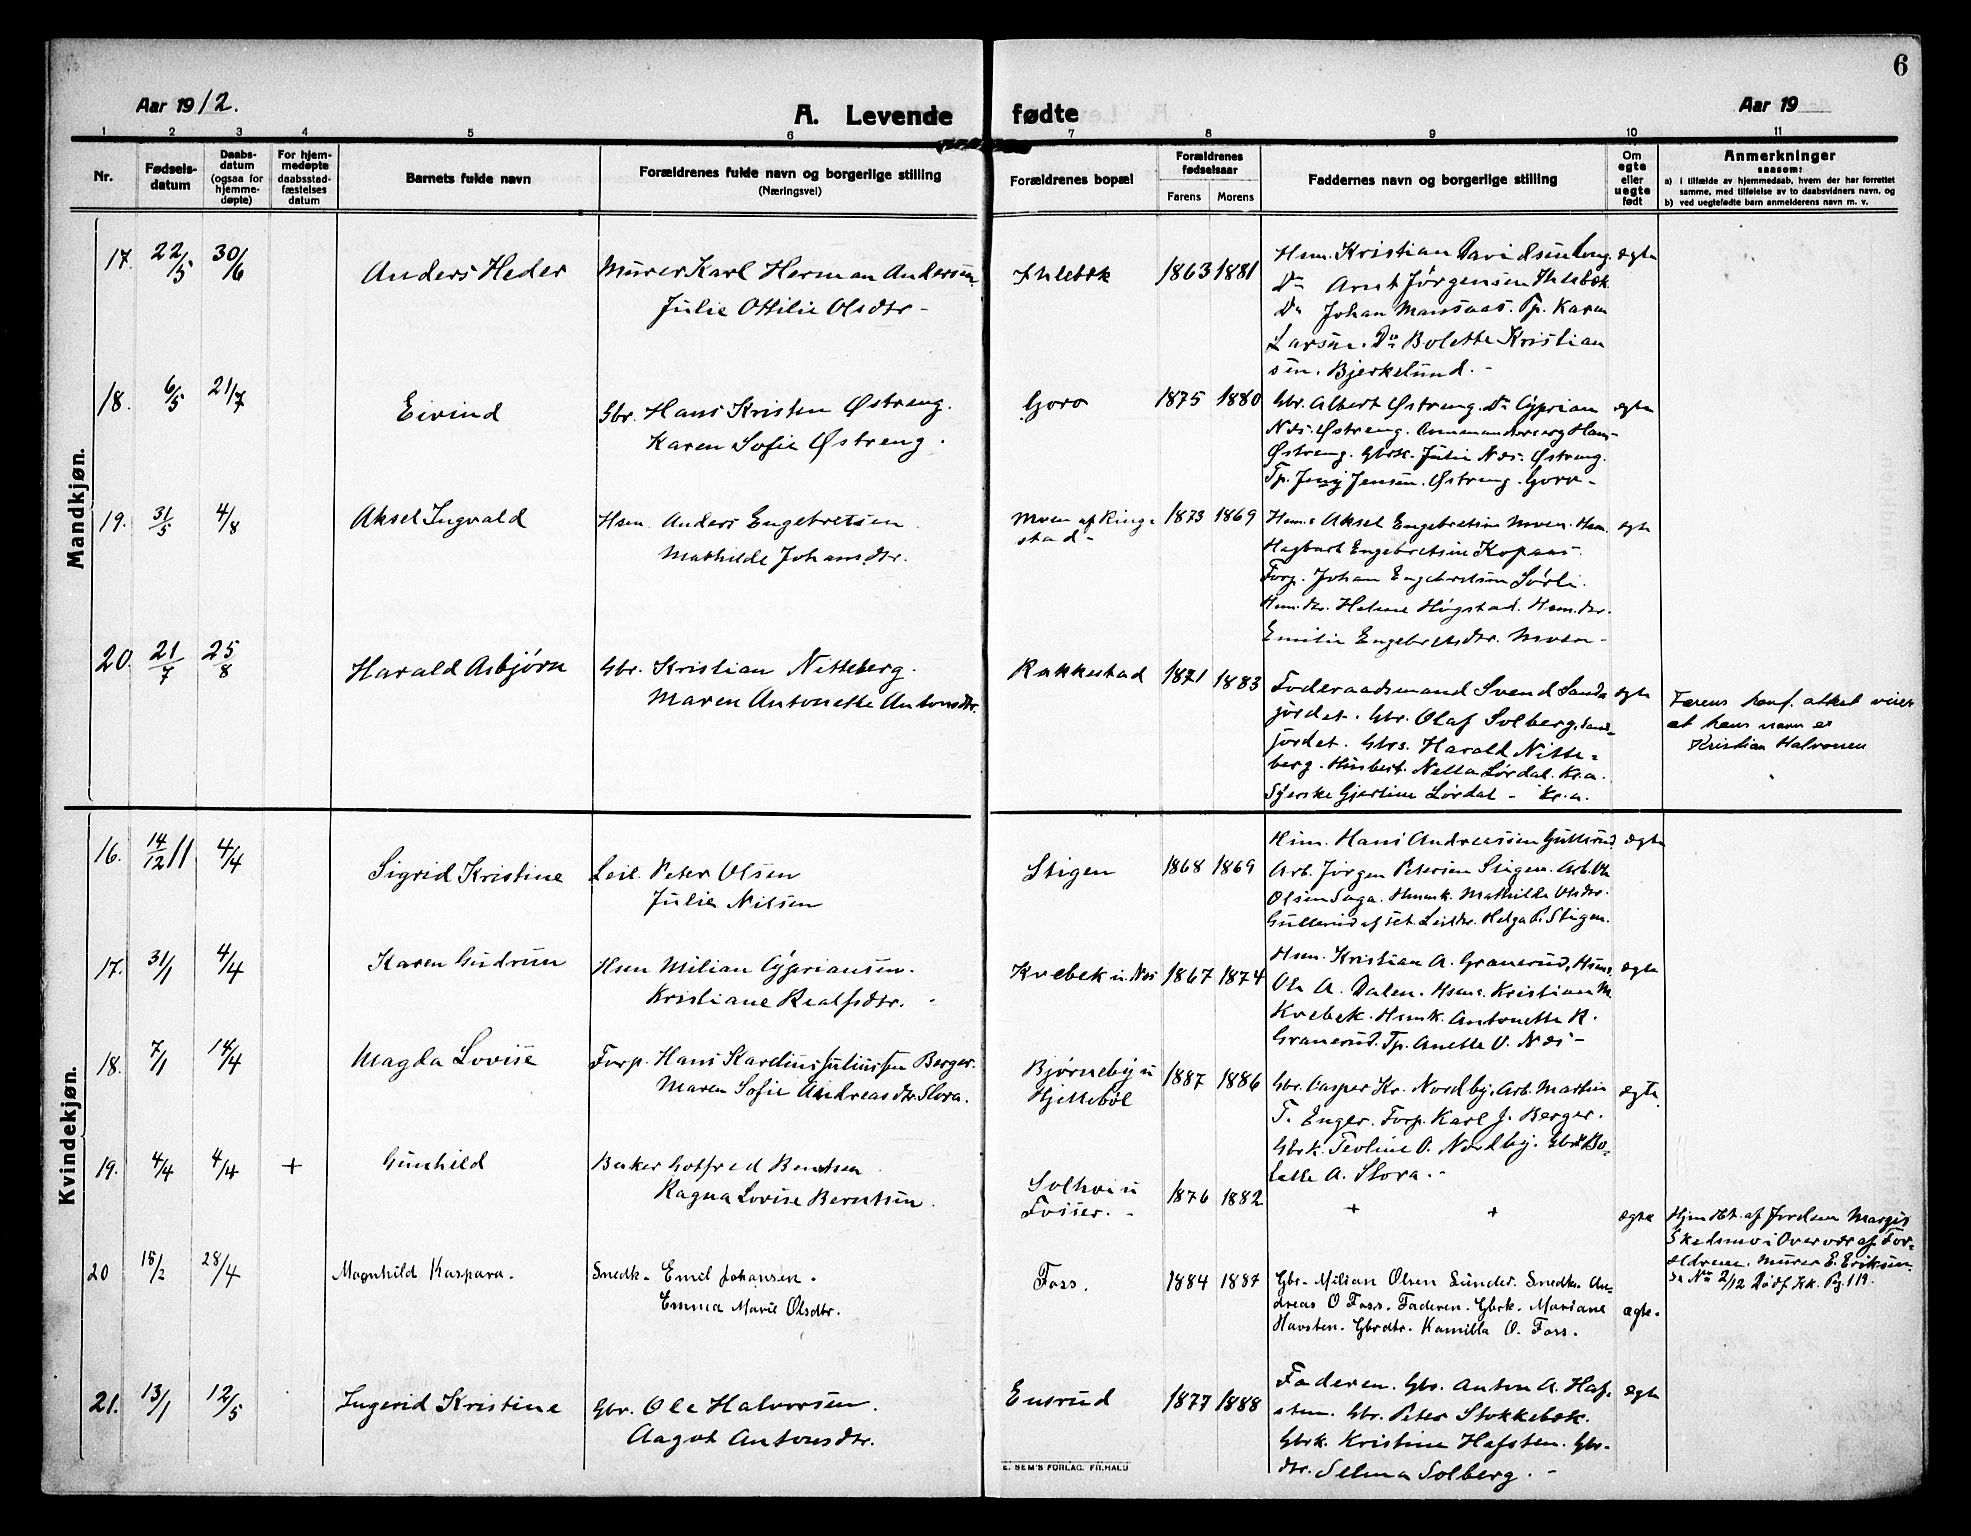 6
Aar 1912.
A. Levende fødte
Aar 19
1 2 3 4 5 6 7 8 9 10 11
Nr.
Fødsels-
datum
Daabs-
datum
(ogsaa for
hjemme-
døpte)
For hjem-
medøpte
daabsstad-
fæstelses
datum
Barnets fulde navn
Forældrenes fulde navn og borgerlige stilling
(Næringsvei)
Forældrenes bopæl
Forældrenes
fødselsaar
Farens Morens
Faddernes navn og borgerlige stilling
Om
egte
eller
uegte
født
Anmerkninger
saasom:
a) i tilfælde av hjemmedaab, hvem der har forrettet
samme, med tilføielse av to daabsvidners navn, og
b) ved uegtefødte barn anmelderens navn m. v.
Mandkjøn.
17. 22/5 30/6 Anders Heder
Murer Karl Herman Andersen
Julie Ottilie Olsdtr -
Ihlebek 1863 1881
Hsm. Kristian Davidsen
Do Arnt Jørgensen Ihlebek
Do Johan Maursaas. Tp. Karen
Larsen. Do Bolette Kristian
sen. Bjerkelund. -
egte
18. 6/5 21/7 Eivind
Gbr. Hans Kristen Østreng.
Karen Sofie Østreng.
Goro 1875 1880
Gbr. Albert Østreng. Do Cyprian
Næs. Østreng. Hans
Østreng. Gbrk. Julie Næs. Østreng.
Tp. Jenny Jensen. Østreng. Goro -
egte
19. 31/5 4/8 Aksel Ingvald
Hsm. Anders Engebretsen.
Mathilde Johansdtr.
Moen af Ring-
stad -
1873 1869
Hsm. Aksel Engebretsen Moen. Hsm.
Hagbart Engebretsen Kopaas.
Forp. Johan Engebretsen Sørli.
Hsm. dtr. Helene Høgstad. Hsm. dtr.
Emilie Engebretsdtr. Moen -
egte
20. 21/7 25/8 Harald Asbjørn
Gbr. Kristian Nitteberg.
Maren Antonette Antonsdtr.
Rakkestad 1871 1883
Foderaadsmand Svend Sand-
jordet. Gbr. Olaf Solberg, Sand-
jordet. Gbrs. Harald Nitte-
berg. Husbest. Nella Lørdal. Kr.a.
Syerske Gjertine Lørdal - Kr.a.
egte
Farens konf. attest viser
at hans navn er
Kristian Halvorsen
Kvindekjøn.
16. 14/12 11 4/4 Sigrid Kristine
Leil. Peter Olsen
Julie Nilsen
Stigen 1868 1869
Hsm. Hans Andreassen Gullerud
Arb. Jørgen Petersen Stigen. Arb. Ole
Olsen Saga. Hsmk. Mathilde Olsdtr.
Gullerud af set. Leildtr. Helga P. Stigen.
ægte
17. 31/1 4/4 Karen Gudrun
Hsm Milian Cypriansen.
Kristiane Realfsdtr.
Kvebek u. Næs 1867 1874
Hsm. Kristian A. Granerud, Hsm.
Ole A. Dalen. Hsms. Kristian M
Kvebek. Hsmk. Antonette R.
Granerud. Tp. Anette O. Næs -
ægte
18. 7/1 14/4 Magda Lovise
Forp. Hans Kardius Juliussen Berger.
Maren Sofie Andreasdtr Slora.
Bjørneby u
Hjellebøl
1887 1886
Gbr. Casper Kr. Nordby. Arb. Martin
T. Enger. Forp. Karl J. Berger.
Gbrk. Teoline O. Nordby. Gbrk Bo-
lette A. Slora. -
ægte.
19. 4/4 4/4 + Gunhild
Baker Gotfred Berntsen
Ragna Lovise Berntsen.
Solhoi u
Fosser. -
1876 1882
+ +
ægte
Hjmdbt. af Jordm Margit
Skedsmo i Overvær af For-
ældrene. Murer E. Eriksen.
se No 2/12 Dødf. Kk. Pg. 119.
20 18/2 28/4 Magnhild Kaspara.
Snedk. Emil Johansen.
Emma Marie Olsdtr.
Foss. 1884 1887
Gbr. Milian Olsen Sunder. Snedk. An-
dreas O Foss. Faderen. Gbrk. Mariane
Havsten. Gbrdtr. Kamilla O. Foss.
ægte.
21. 13/1 12/5 Ingerid Kristine
Gbr. Ole Halvorsen.
Aagot Antonsdtr.
Ensrud 1877 1888
Faderen. Gbs. Anton A. Haf-
sten. Gbr. Peter Stokkebæk.
Gbrk. Kristine Hafsten. Gbr-
dtr. Selma Solberg. -
ægte
E. SEM'S FORLAG. FR.HALD